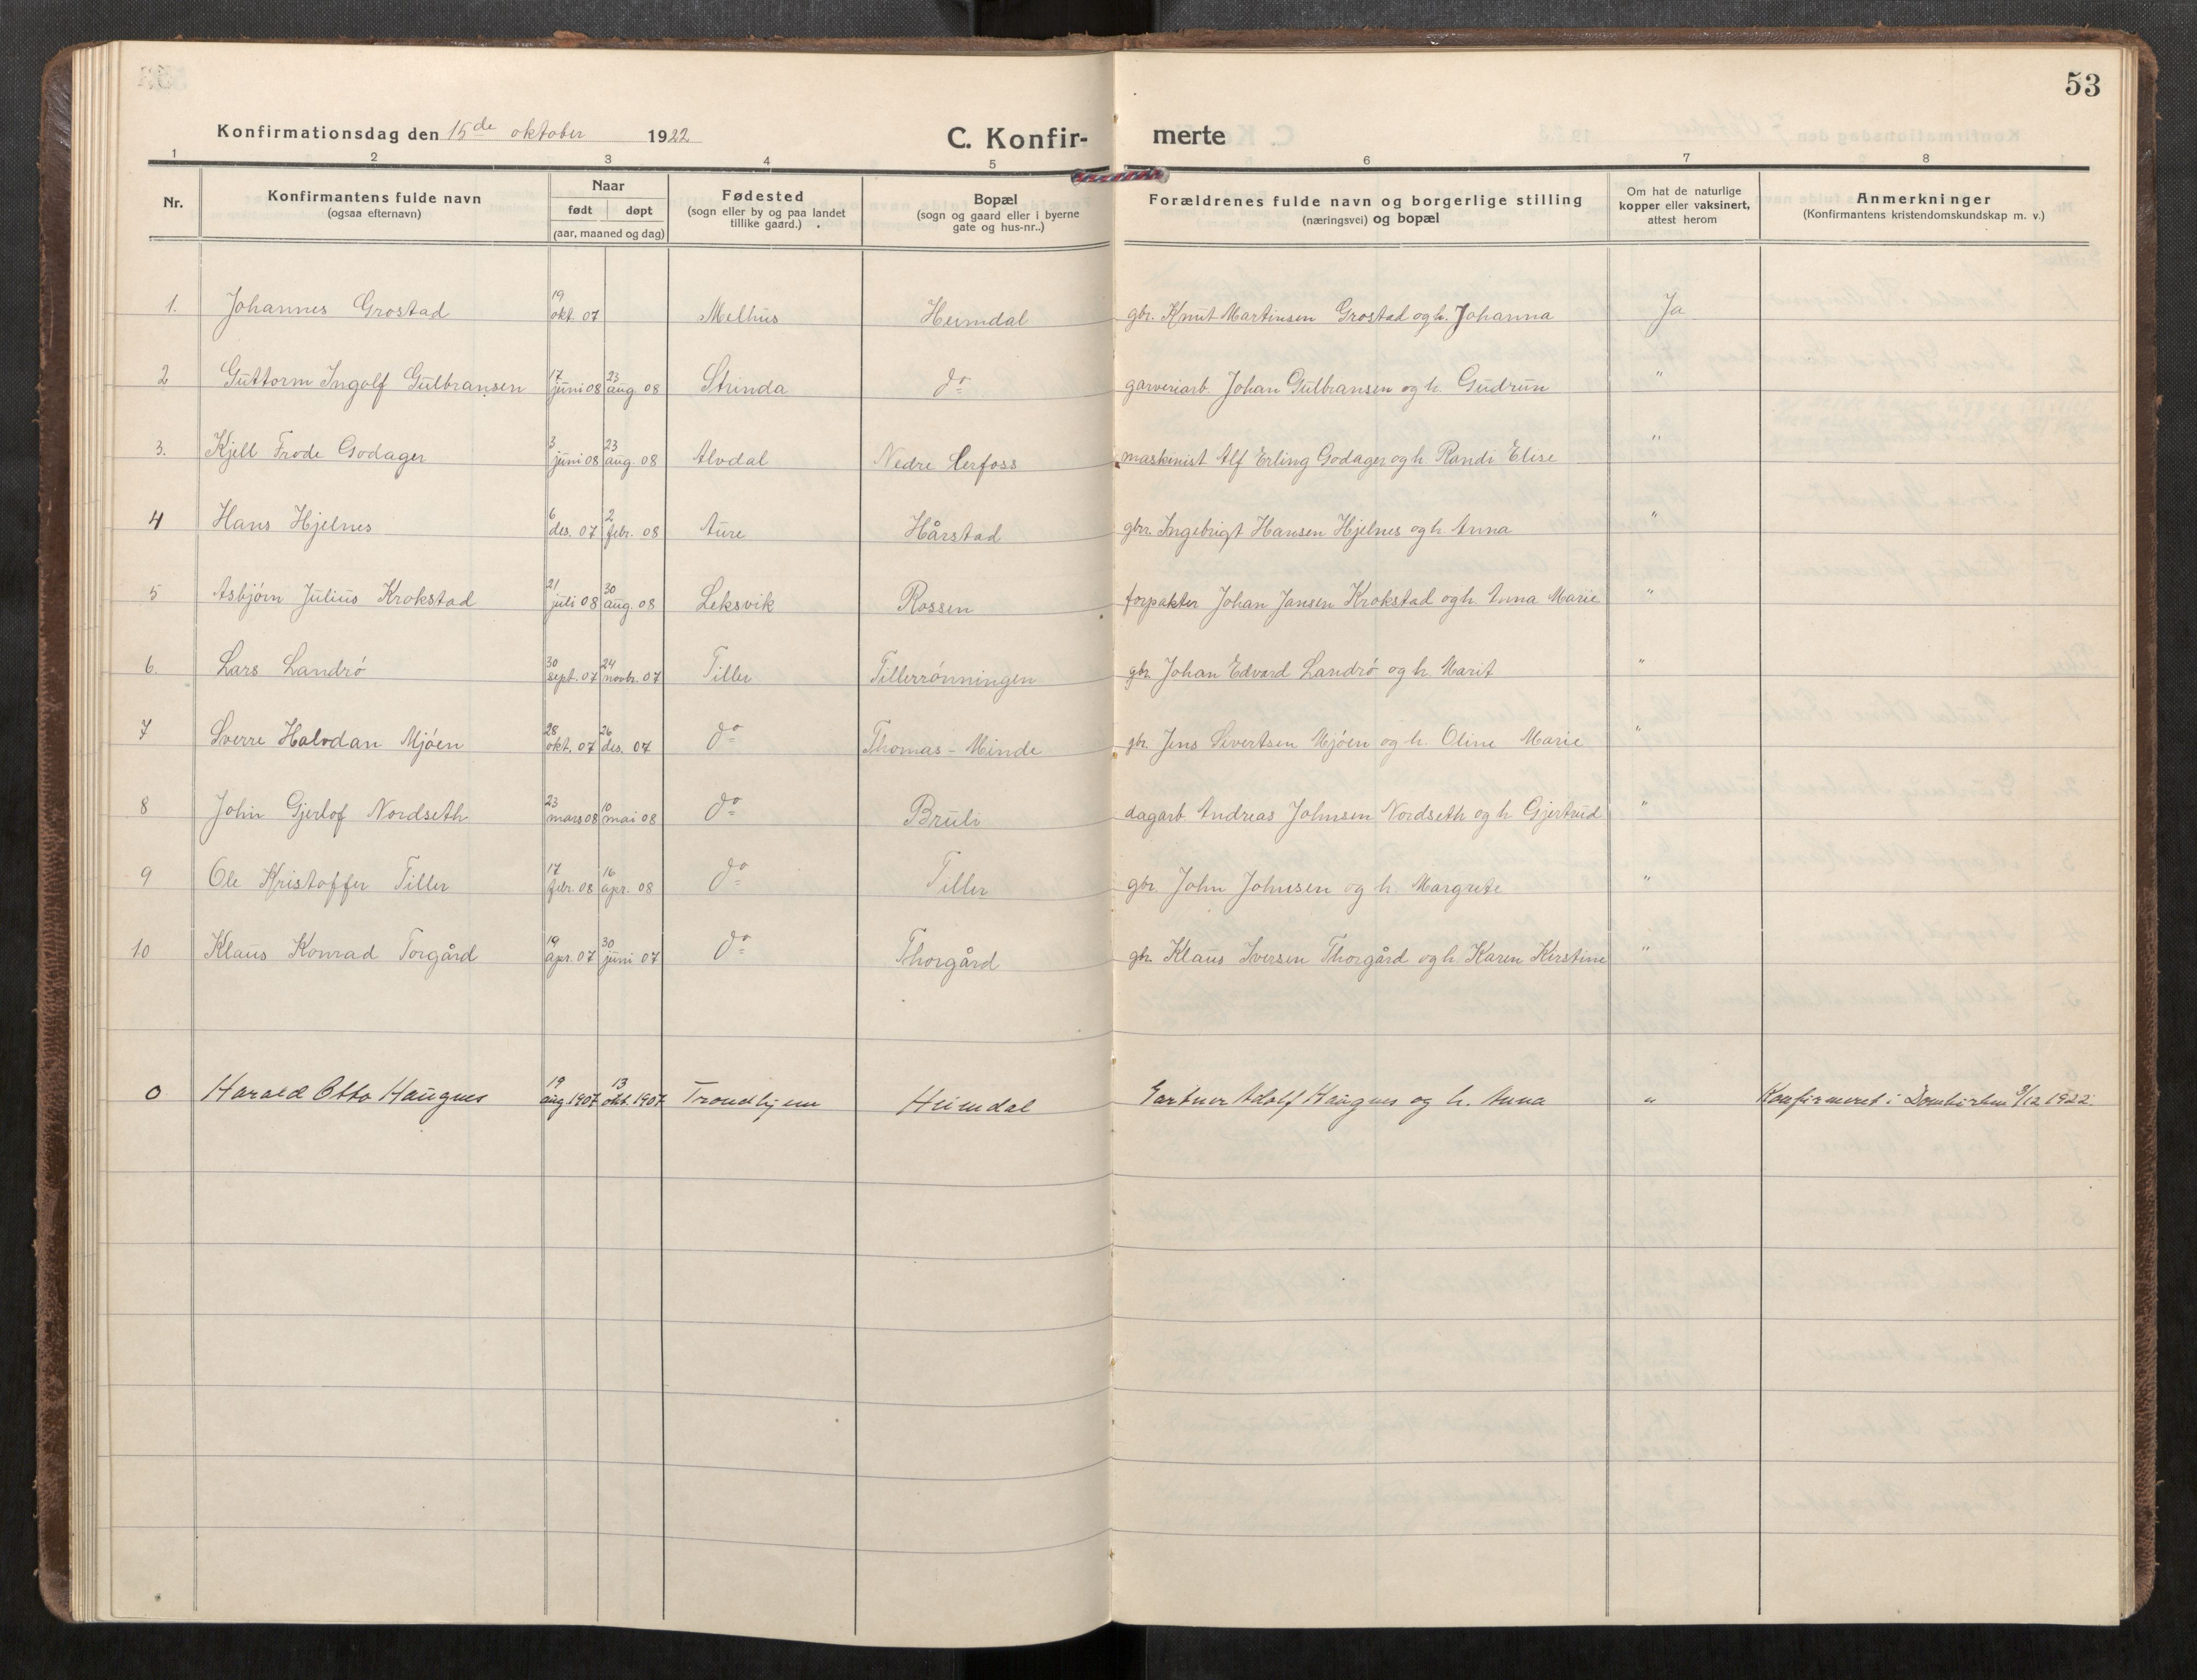 53
Konfirmationsdag den 15de oktober 1922 C. Konfir- merte
1 2 3 4 5 6 7 8
Nr. Konfirmantens fulde navn (ogsaa efternavn) Naar født døpt (aar, maaned og dag) Fødested (sogn eller by og paa landet tillike gaard.) Bopæl (sogn og gaard eller i byerne gate og hus-nr..) Forældrenes fulde navn og borgerlige stilling (næringsvei) og bopæl Om hat de naturlige kopper eller vaksinert, attest herom Anmerkninger (Konfirmantens kristendomskundskap m. v.)
1. Johannes Grostad 19 okt. 07 Melhus Heimdal gbr. Knut Martinsen Grostad og h. Johanna Ja
2 Guttorm Ingolf Gulbransen 17 juni 08 23 aug. 08 Strinda do garveriarb. Johan Gulbransen og h. Gudrun "
3. Kjell Frode Godager 3 juni 08 23 aug. 08 Alvdal Nedre Lerfoss maskinist Alf Erling Godager og h. Randi Elise "
4 Hans Hjelnes 6 des. 07 2 febr. 08 Aure Hårstad gbr. Ingebrigt Hansen Hjelnes og h. Anna "
5 Asbjørn Julius Krokstad 21 juli 08 30 aug. 08 Leksvik Rossen forpakter Johan Jansen Krokstad og h. Anna Marie "
6. Lars Landrö 30 sept. 07 24 novbr. 07 Tiller Tillerrönningen gbr. Johan Edvard Landrö og h. Marit "
7 Sverre Halvdan Mjöen 28 okt. 07 26 des. 07 do Thomas-Minde gbr. Jens Sivertsen Mjöen og h. Oline Marie "
8 John Gjerlof Nordseth 23 mars 08 10 mai 08 do Bruli dagarb. Andreas Johnsen Nordseth og h. Gjertrud "
9 Ole Kristoffer Tiller 17 febr. 08 16 apr. 08 do Tiller gbr. John Johnsen og h. Margrete "
10 Klaus Konrad Torgård 19 apr. 07 30 juni 07 do Thorgård gbr. Klaus Iversen Thorgård og h. Karen Kirstine "
0 Harald Otto Haugnes 19 aug 1907 13 okt. 1907 Trondhjem Heimdal Gartner Adolf Haugnes og h. Anna " Konfirmeret i Domkirken 3/12 1922.